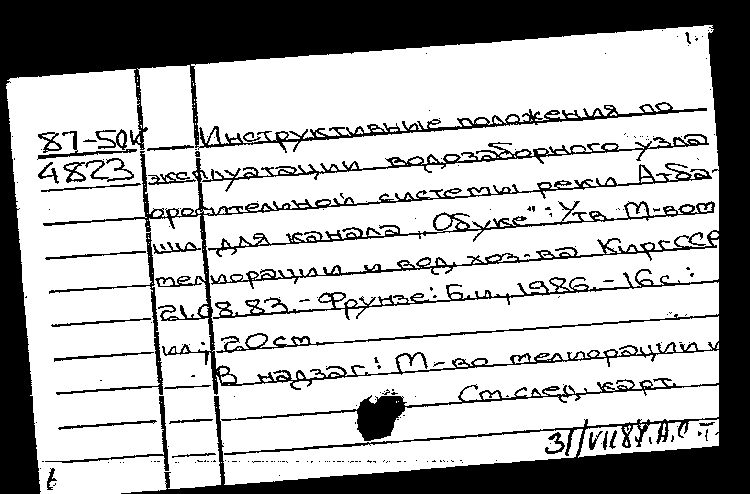 1.
87-50К Инструктивные положения по
4823 эксплуатации водозаборного узла
оросительной системы реки Атба-
ши для канала „Обуке“: Утв. М-вом
мелиорации и вод. хоз-ва КиргССР
21.08.83. - Фрунзе: Б.и., 1986. - 16 с.:
ил.; 20 см.
В надзаг.: М-во мелиорации и
См. след. карт.